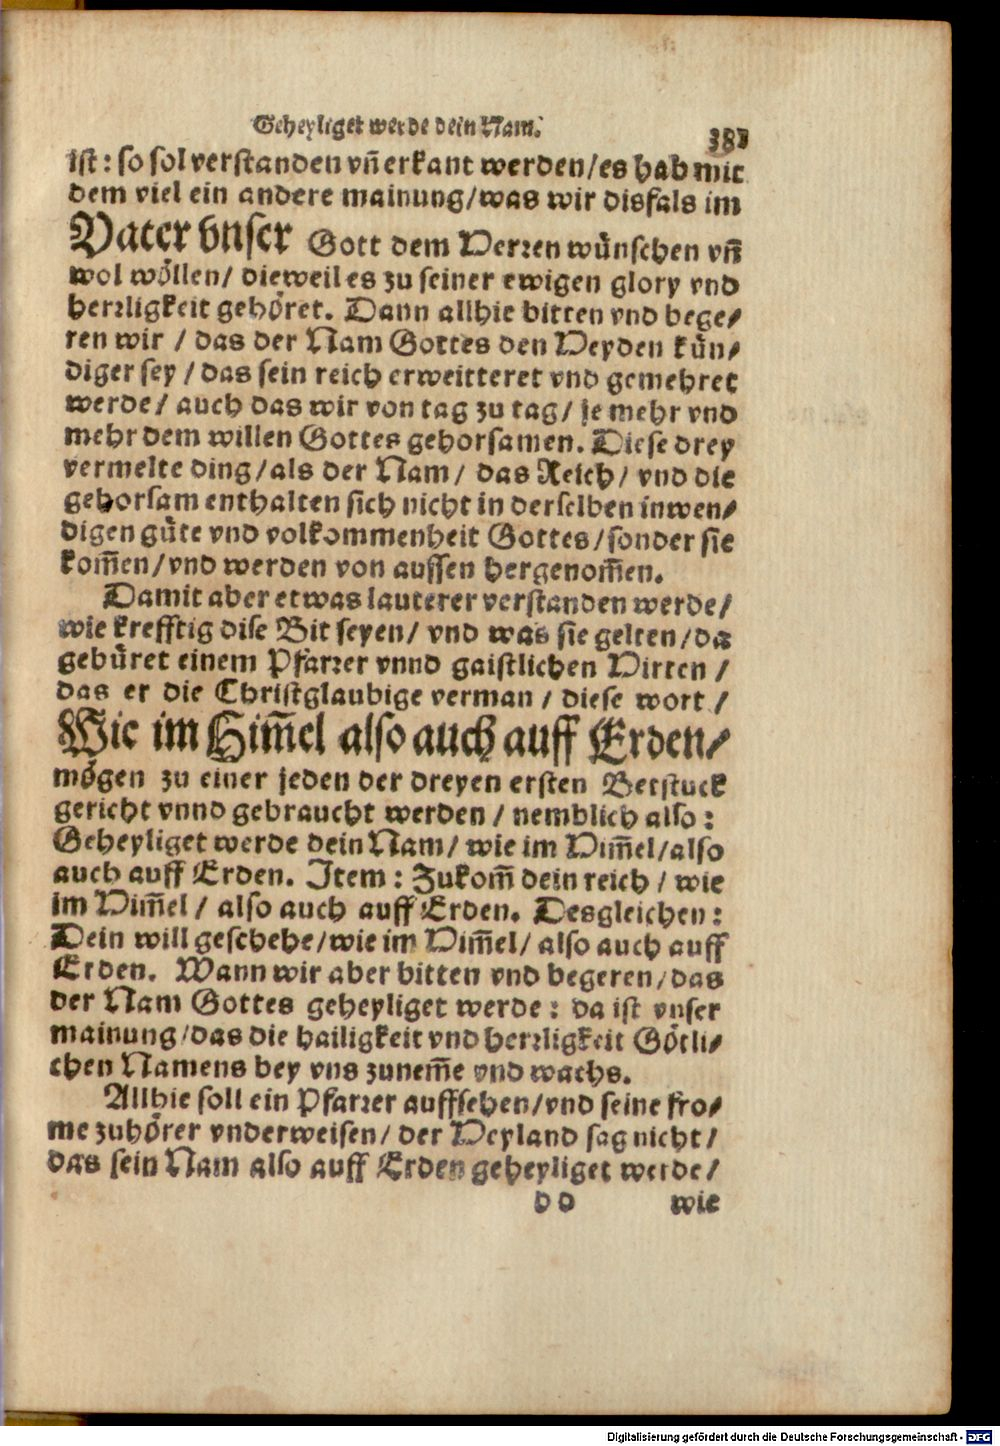 Geheyliget werde dein Nam.
383
ist: so sol verstanden vn̄ erkant werden/es hab mit
dem viel ein andere mainung/was wir disfals im
Vater vnser Gott dem Herren wünschen vn̄
wol wöllen/ dieweil es zu seiner ewigen glory vnd
herrligkeit gehöret. Dann allhie bitten vnd bege/
ren wir / das der Nam Gottes den Heyden kün/
diger sey / das sein reich erweitteret vnd gemehret
werde/ auch das wir von tag zu tag/ je mehr vnd
mehr dem willen Gottes gehorsamen. Diese drey
vermelte ding/als der Nam/ das Reich/ vnd die
gehorsam enthalten sich nicht in derselben inwen/
digen güte vnd volkommenheit Gottes/sonder sie
kom̄en/vnd werden von aussen hergenom̄en.
Damit aber etwas lauterer verstanden werde/
wie krefftig dise Bit seyen/ vnd was sie gelten/da
gebüret einem Pfarrer vnnd gaistlichen Hirten /
das er die Christglaubige verman / diese wort /
Wie im Him̄el also auch auff Erden/
mögen zu einer jeden der dreyen ersten Betstuck
gericht vnnd gebraucht werden / nemblich also:
Geheyliget werde dein Nam/ wie im Him̄el/also
auch auff Erden. Item: Zukom̄ dein reich / wie
im Him̄el / also auch auff Erden. Desgleichen:
Dein will geschehe/wie im Him̄el/ also auch auff
Erden. Wann wir aber bitten vnd begeren/das
der Nam Gottes geheyliget werde: da ist vnser
mainung/das die hailigkeit vnd herrligkeit Götli/
chen Namens bey vns zunem̄e vnd wachs.
Allhie soll ein Pfarrer auffsehen/vnd seine fro/
me zuhörer vnderweisen/ der Heyland sag nicht/
das sein Nam also auff Erden geheyliget werde/
DD wie
Digitalisierung gefördert durch die Deutsche Forschungsgemeinschaft - DFG